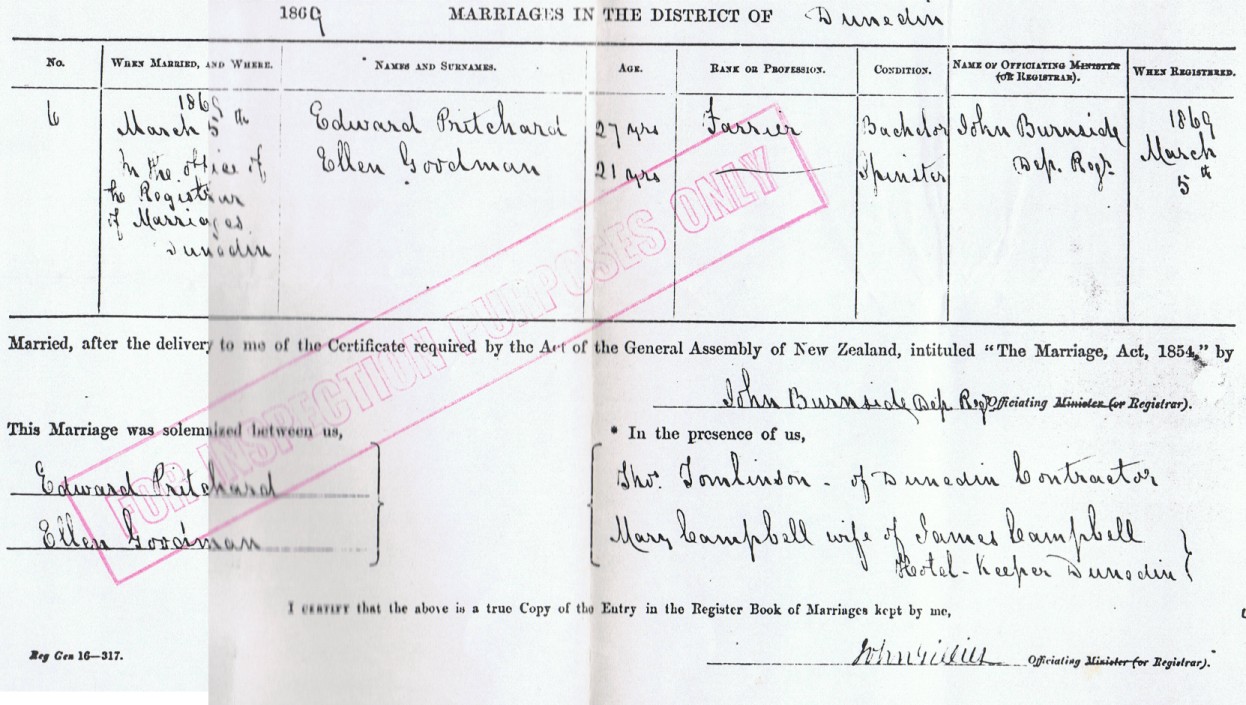 1869 MARRIAGES IN THE DISTRICT OF Dunedin
No. WHEN MARRIED, AND WHERE. NAMES AND SURNAMES. AGE. RANK OR PROFESSION. CONDITION. NAME OF OFFICIATING MINISTER (OR REGISTRAR). WHEN REGISTERED.
6
1869
March 5th
In the office of
the Registrar
of Marriages
Dunedin
Edward Pritchard
Ellen Goodman
27 yrs
21 yrs
Farrier
Bachelor
Spinster
John Burnside
Dep. Regr.
1869
March
5th
FOR INSPECTION PURPOSES ONLY
Married, after the delivery to me of the Certificate required by the Act of the General Assembly of New Zealand, intituled "The Marriage, Act, 1854," by
John Burnside Dep Regr Officiating Minister (or Registrar).
This Marriage was solemnized between us,
Edward Pritchard
Ellen Goodman
* In the presence of us,
Thos. Tomlinson - of Dunedin Contractor
Mary Campbell wife of James Campbell
Hotel-Keeper Dunedin
I CERTIFY that the above is a true Copy of the Entry in the Register Book of Marriages kept by me,
John Gillies Officiating Minister (or Registrar).
Reg Gen 16—317.